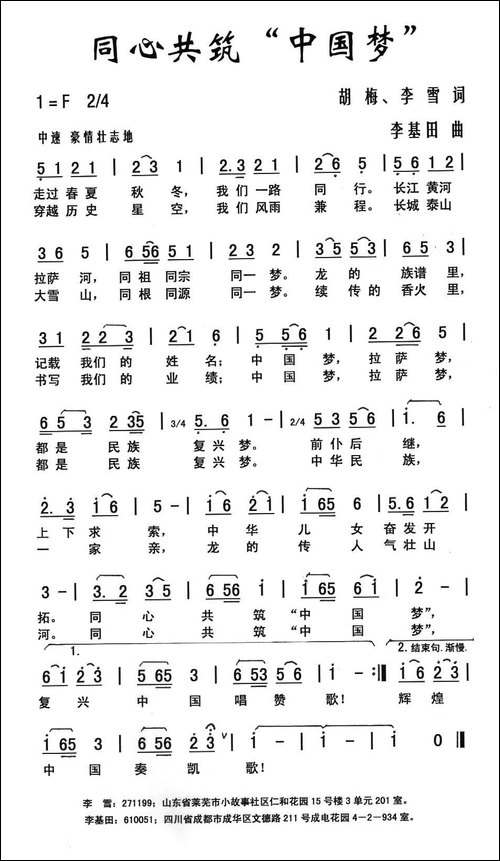 同心共筑“中国梦”
1=F 2/4
胡梅、李雪 词
中速 豪情壮志地
李基田 曲
5 1 21 | 2 3 1 | 2.3 21 | 2 6 5 | 5 6 12 |
走过春夏 秋冬，我们一路 同行。长江黄河
穿越历史 星空，我们风雨 兼程。长城泰山
3 6 5 | 6 56 51 | 2 3 2 | 35 53 | 6 3 5 |
拉萨河，同祖同宗 同一梦。龙的 族谱里，
大雪山，同根同源 同一梦。续传的 香火里，
31 22 3 | 2 1 6 | 5 56 1 | 2 26 2 |
记载我们的 姓名；中国梦，拉萨梦，
书写我们的 业绩；中国梦，拉萨梦，
6 5 3 | 2 35 | 3/4 5. 6 1 - | 2/4 53 56 | 1. 6 |
都是 民族 复兴梦。前仆后 继，
都是 民族 复兴梦。中华民 族，
2. 3 | 1 6 | 5 - | 1 6 21 | 1 65 6 | 5.6 12 |
上下求 索，中华儿 女奋发开
一家亲，龙的传 人气壮山
3 - | 3. 2 | 3 5 | 6 56 1 | 1 65 | 3 6 |
拓。同心共筑“中国梦”，
河。同心共筑“中国梦”，
1.
2. 结束句.渐慢.
6 1 2 3 | 6 53 | 2 1 - :‖ 1 6 2 3 |
复兴中国唱赞歌！辉煌
1 65 3 | 6 56 2 3 | 1 - | 1 - ‖
中国奏凯歌！
李 雪：271199；山东省莱芜市小故事社区仁和花园15号楼3单元201室。
李基田：610051；四川省成都市成华区文德路211号成电花园4-2-934室。